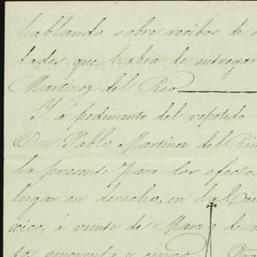 hablando sobre recibos de
dades que habia de entregar
Martinez del Rio
Y a pedimento del repetido
Don Pablo Martinez del Rio
la presente para los efectos
lugar en derecho, en la
xico, á veinte de Marzo de
cincuenta y cinco